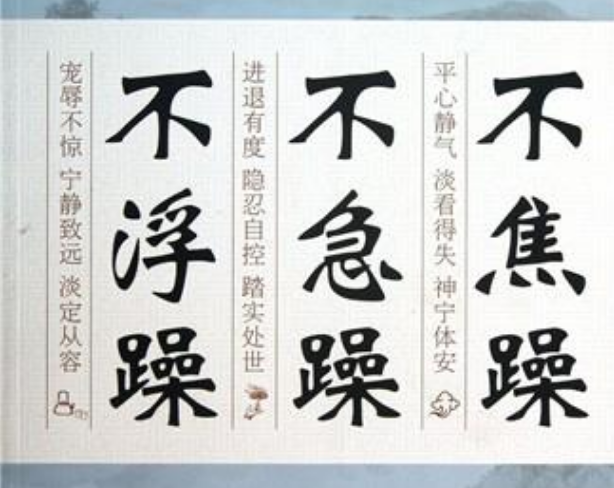 不焦躁
平心静气 淡看得失 神宁体安
不急躁
进退有度 隐忍自控 踏实处世
不浮躁
宠辱不惊 宁静致远 淡定从容